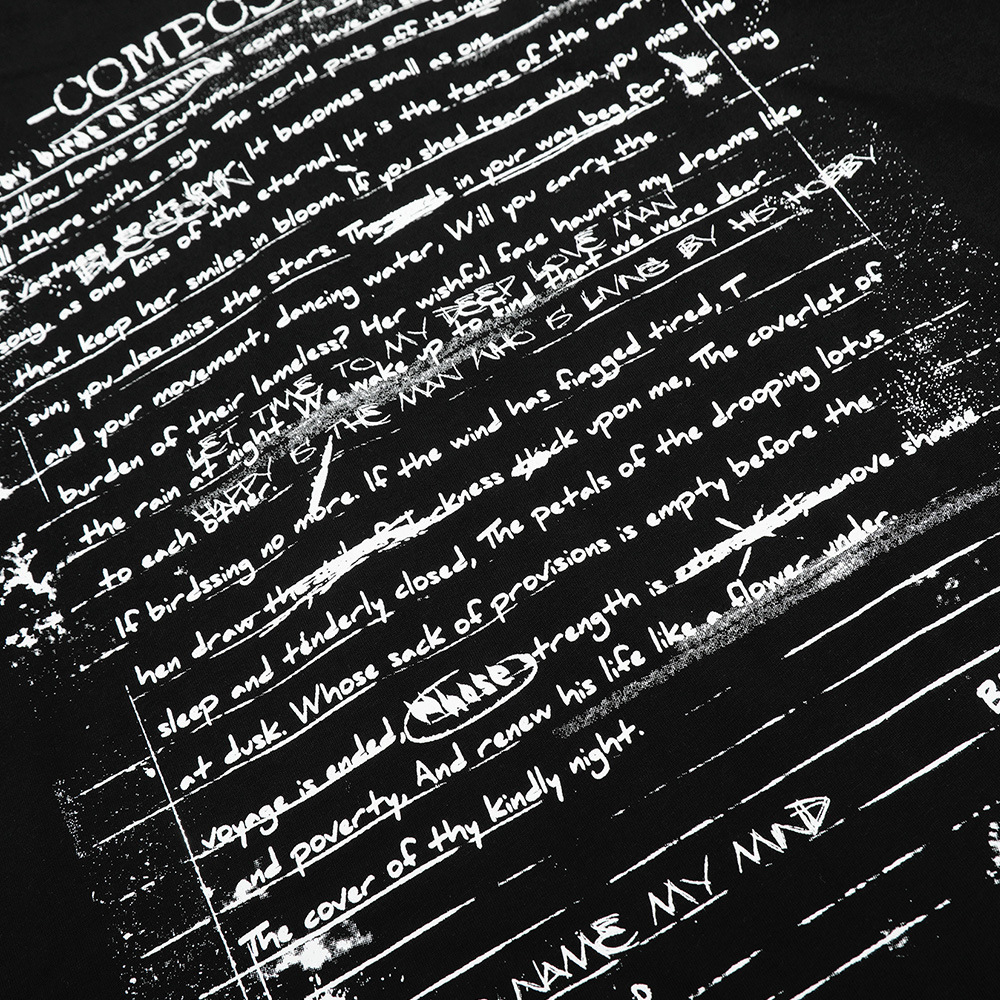 COMPOS
come to
yellow leaves of autumn, which have no
there with a sigh. The world puts off its
BLEGHIN it becomes small as one
song, as one kiss of the eternal. It is the tears of the earth
that keep her smiles in bloom. If you shed tears when you miss the
sun; you also miss the stars. The in your way beg for song
and your movement, dancing water, Will you carry the
burden of their lameless? Her wishful face haunts my dreams like
LET TIME TO MY DEEP LOVE MAN
the rain at night. We wake up to find that we were dear
HAPPY IS THE MAN WHO IS LIVING BY HIS HOBBY
to each other.
If birdssing no more. If the wind has flagged tired, T
hen draw the ckness thick upon me, The coverlet of
sleep and tenderly closed, The petals of the drooping lotus
at dusk. Whose sack of provisions is empty before the
voyage is ended, WHOSE strength is remove shame
and poverty, And renew his life like a flower under.
The cover of thy kindly night.
NAME MY MND